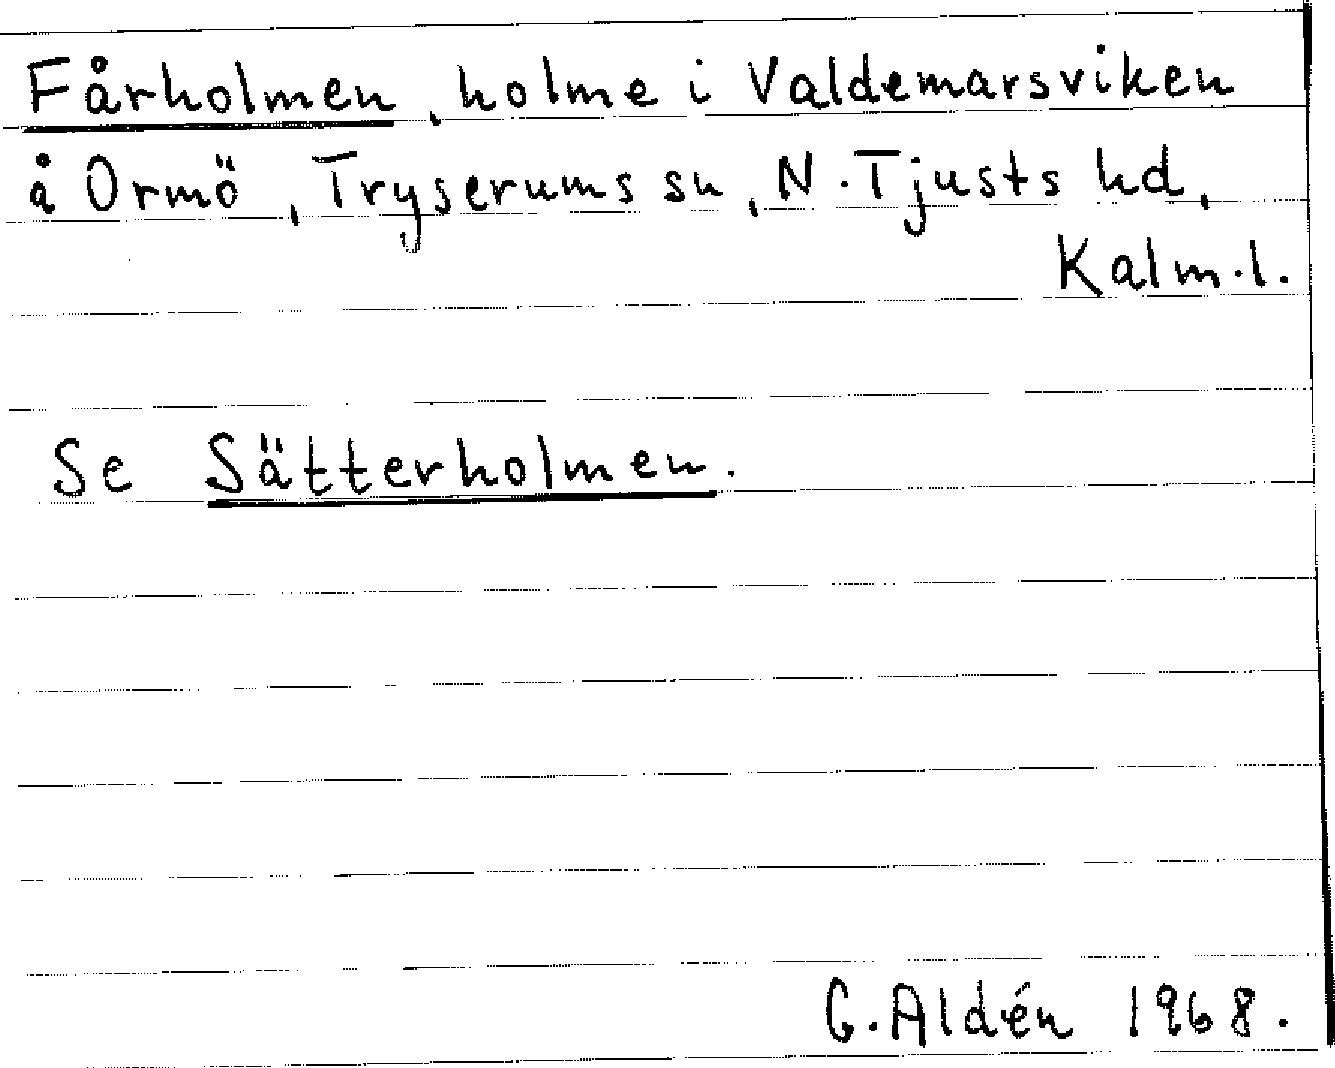 Fårholmen, holme i Valdemarsviken
å Ormö, Tryserums sn, N. Tjusts hd,
Kalm. l.
Se Sätterholmen.
G. Aldén 1968.